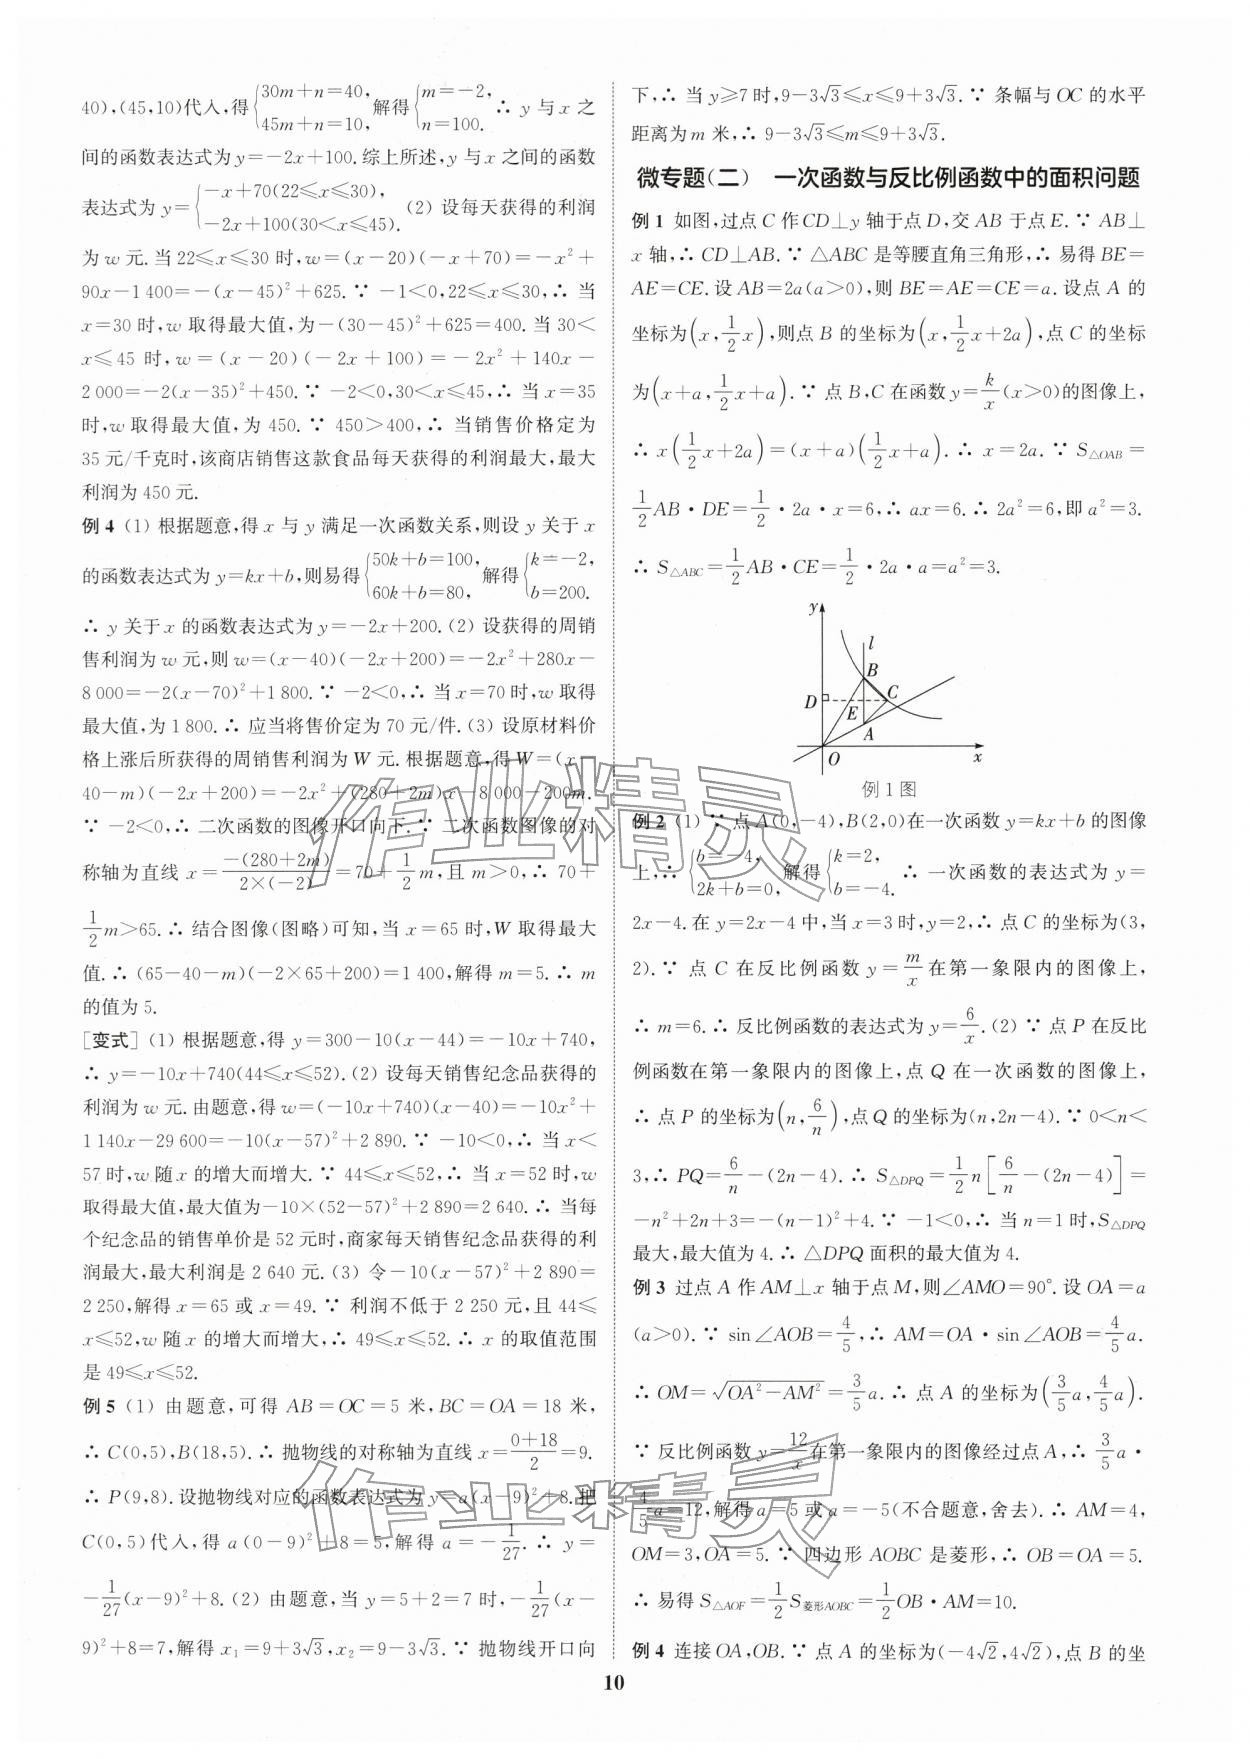 40),(45,10)代入,得{30m+n=40, 45m+n=10, 解得{m=-2, n=100. ∴ y 与 x 之
间的函数表达式为 y=-2x+100. 综上所述,y 与 x 之间的函数
表达式为 y={-x+70(22≤x≤30), -2x+100(30<x≤45). (2) 设每天获得的利润
为 w 元. 当 22≤x≤30 时,w=(x-20)(-x+70)=-x²+
90x-1 400=-(x-45)²+625. ∵ -1<0,22≤x≤30,∴ 当
x=30 时,w 取得最大值,为-(30-45)²+625=400. 当 30<
x≤45 时,w=(x-20)(-2x+100)=-2x²+140x-
2 000=-2(x-35)²+450. ∵ -2<0,30<x≤45,∴ 当 x=35
时,w 取得最大值,为 450. ∵ 450>400,∴ 当销售价格定为
35 元/千克时,该商店销售这款食品每天获得的利润最大,最大
利润为 450 元.
例 4 (1) 根据题意,得 x 与 y 满足一次函数关系,则设 y 关于 x
的函数表达式为 y=kx+b,则易得{50k+b=100, 60k+b=80, 解得{k=-2, b=200.
∴ y 关于 x 的函数表达式为 y=-2x+200. (2) 设获得的周销
售利润为 w 元,则 w=(x-40)(-2x+200)=-2x²+280x-
8 000=-2(x-70)²+1 800. ∵ -2<0,∴ 当 x=70 时,w 取得
最大值,为 1 800. ∴ 应当将售价定为 70 元/件. (3) 设原材料价
格上涨后所获得的周销售利润为 W 元. 根据题意,得 W=(x-
40-m)(-2x+200)=-2x²+(280+2m)x-8 000-200m.
∵ -2<0,∴ 二次函数的图像开口向下. ∵ 二次函数图像的对
称轴为直线 x=-(280+2m)/2×(-2)=70+1/2 m,且 m>0,∴ 70+
1/2 m>65. ∴ 结合图像(图略)可知,当 x=65 时,W 取得最大
值. ∴ (65-40-m)(-2×65+200)=1 400,解得 m=5. ∴ m
的值为 5.
[变式] (1) 根据题意,得 y=300-10(x-44)=-10x+740,
∴ y=-10x+740(44≤x≤52). (2) 设每天销售纪念品获得的
利润为 w 元. 由题意,得 w=(-10x+740)(x-40)=-10x²+
1 140x-29 600=-10(x-57)²+2 890. ∵ -10<0,∴ 当 x<
57 时,w 随 x 的增大而增大. ∵ 44≤x≤52,∴ 当 x=52 时,w
取得最大值,最大值为-10×(52-57)²+2 890=2 640. ∴ 当每
个纪念品的销售单价是 52 元时,商家每天销售纪念品获得的利
润最大,最大利润是 2 640 元. (3) 令-10(x-57)²+2 890=
2 250,解得 x=65 或 x=49. ∵ 利润不低于 2 250 元,且 44≤
x≤52,w 随 x 的增大而增大,∴ 49≤x≤52. ∴ x 的取值范围
是 49≤x≤52.
例 5 (1) 由题意,可得 AB=OC=5 米,BC=OA=18 米,
∴ C(0,5),B(18,5). ∴ 抛物线的对称轴为直线 x=(0+18)/2=9.
∴ P(9,8). 设抛物线对应的函数表达式为 y=a(x-9)²+8. 把
C(0,5)代入,得 a(0-9)²+8=5,解得 a=-1/27. ∴ y=
-1/27(x-9)²+8. (2) 由题意,当 y=5+2=7 时,-1/27(x-
9)²+8=7,解得 x₁=9+3√3,x₂=9-3√3. ∵ 抛物线开口向
下,∴ 当 y≥7 时,9-3√3≤x≤9+3√3. ∵ 条幅与 OC 的水平
距离为 m 米,∴ 9-3√3≤m≤9+3√3.
微专题(二) 一次函数与反比例函数中的面积问题
例 1 如图,过点 C 作 CD⊥y 轴于点 D,交 AB 于点 E. ∵ AB⊥
x 轴,∴ CD⊥AB. ∵ △ABC 是等腰直角三角形,∴ 易得 BE=
AE=CE. 设 AB=2a(a>0),则 BE=AE=CE=a. 设点 A 的
坐标为(x,1/2 x),则点 B 的坐标为(x,1/2 x+2a),点 C 的坐标
为(x+a,1/2 x+a). ∵ 点 B,C 在函数 y=k/x(x>0)的图像上,
∴ x(1/2 x+2a)=(x+a)(1/2 x+a). ∴ x=2a. ∵ S△OAB=
1/2 AB·DE=1/2·2a·x=6,∴ ax=6. ∴ 2a²=6,即 a²=3.
∴ S△ABC=1/2 AB·CE=1/2·2a·a=a²=3.
y
l
B
D
C
E
A
O
x
例 1 图
例 2 (1) ∵ 点 A(0,-4),B(2,0)在一次函数 y=kx+b 的图像
上,∴ {b=-4, 2k+b=0, 解得{k=2, b=-4. ∴ 一次函数的表达式为 y=
2x-4. 在 y=2x-4 中,当 x=3 时,y=2,∴ 点 C 的坐标为(3,
2). ∵ 点 C 在反比例函数 y=m/x 在第一象限内的图像上,
∴ m=6. ∴ 反比例函数的表达式为 y=6/x. (2) ∵ 点 P 在反比
例函数在第一象限内的图像上,点 Q 在一次函数的图像上,
∴ 点 P 的坐标为(n,6/n),点 Q 的坐标为(n,2n-4). ∵ 0<n<
3,∴ PQ=6/n-(2n-4). ∴ S△DPQ=1/2 n[6/n-(2n-4)]=
-n²+2n+3=-(n-1)²+4. ∵ -1<0,∴ 当 n=1 时,S△DPQ
最大,最大值为 4. ∴ △DPQ 面积的最大值为 4.
例 3 过点 A 作 AM⊥x 轴于点 M,则∠AMO=90°. 设 OA=a
(a>0). ∵ sin∠AOB=4/5,∴ AM=OA·sin∠AOB=4/5 a.
∴ OM=√(OA²-AM²)=3/5 a. ∴ 点 A 的坐标为(3/5 a,4/5 a).
∵ 反比例函数 y=12/x 在第一象限内的图像经过点 A,∴ 3/5 a·
4/5 a=12,解得 a=5 或 a=-5(不合题意,舍去). ∴ AM=4,
OM=3,OA=5. ∵ 四边形 AOBC 是菱形,∴ OB=OA=5.
∴ 易得 S△AOF=1/2 S菱形AOBC=1/2 OB·AM=10.
例 4 连接 OA,OB. ∵ 点 A 的坐标为(-4√2,4√2),点 B 的坐
10
作业精灵
作业精灵